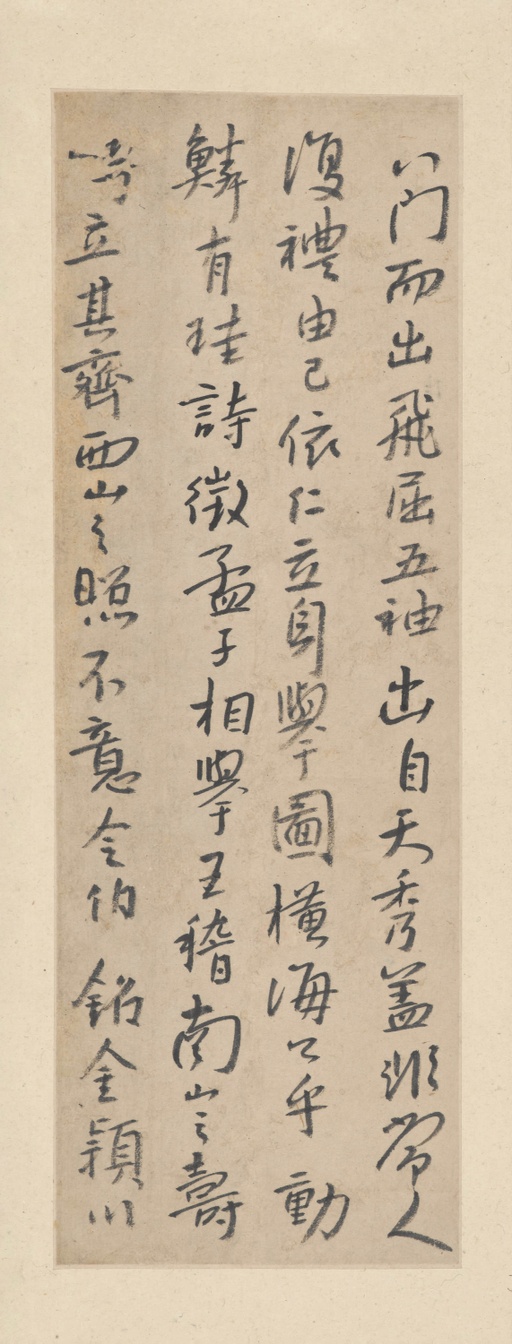 八門而出飛屈五袖出自天秀蓋非常人
復禮由己依仁立身舉圖橫海公乎動
鱗有珪詩徵孟子相舉王稽南山之壽
立其齊西山之照不意令伯銘金穎川